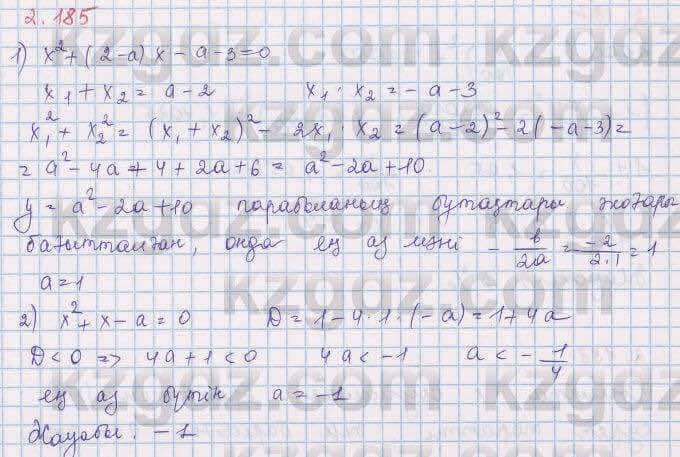 2.185
1) x² + (2-a) x - a - 3 = 0
x₁ + x₂ = a - 2      x₁ · x₂ = - a - 3
x₁² + x₂² = (x₁ + x₂)² - 2x₁ · x₂ = (a - 2)² - 2(-a-3) =
= a² - 4a + 4 + 2a + 6 = a² - 2a + 10
y = a² - 2a + 10 параболаның бұтақтары жоғары
бағытталған, онда ең аз мәні - b/2a = -2/2·1 = 1
a = 1
2) x² + x - a = 0      D = 1 - 4 · 1 · (-a) = 1 + 4a
D < 0 => 4a + 1 < 0      4a < -1      a < - 1/4
ең аз бүтін a = -1
Жауабы: -1
kzgdz.com